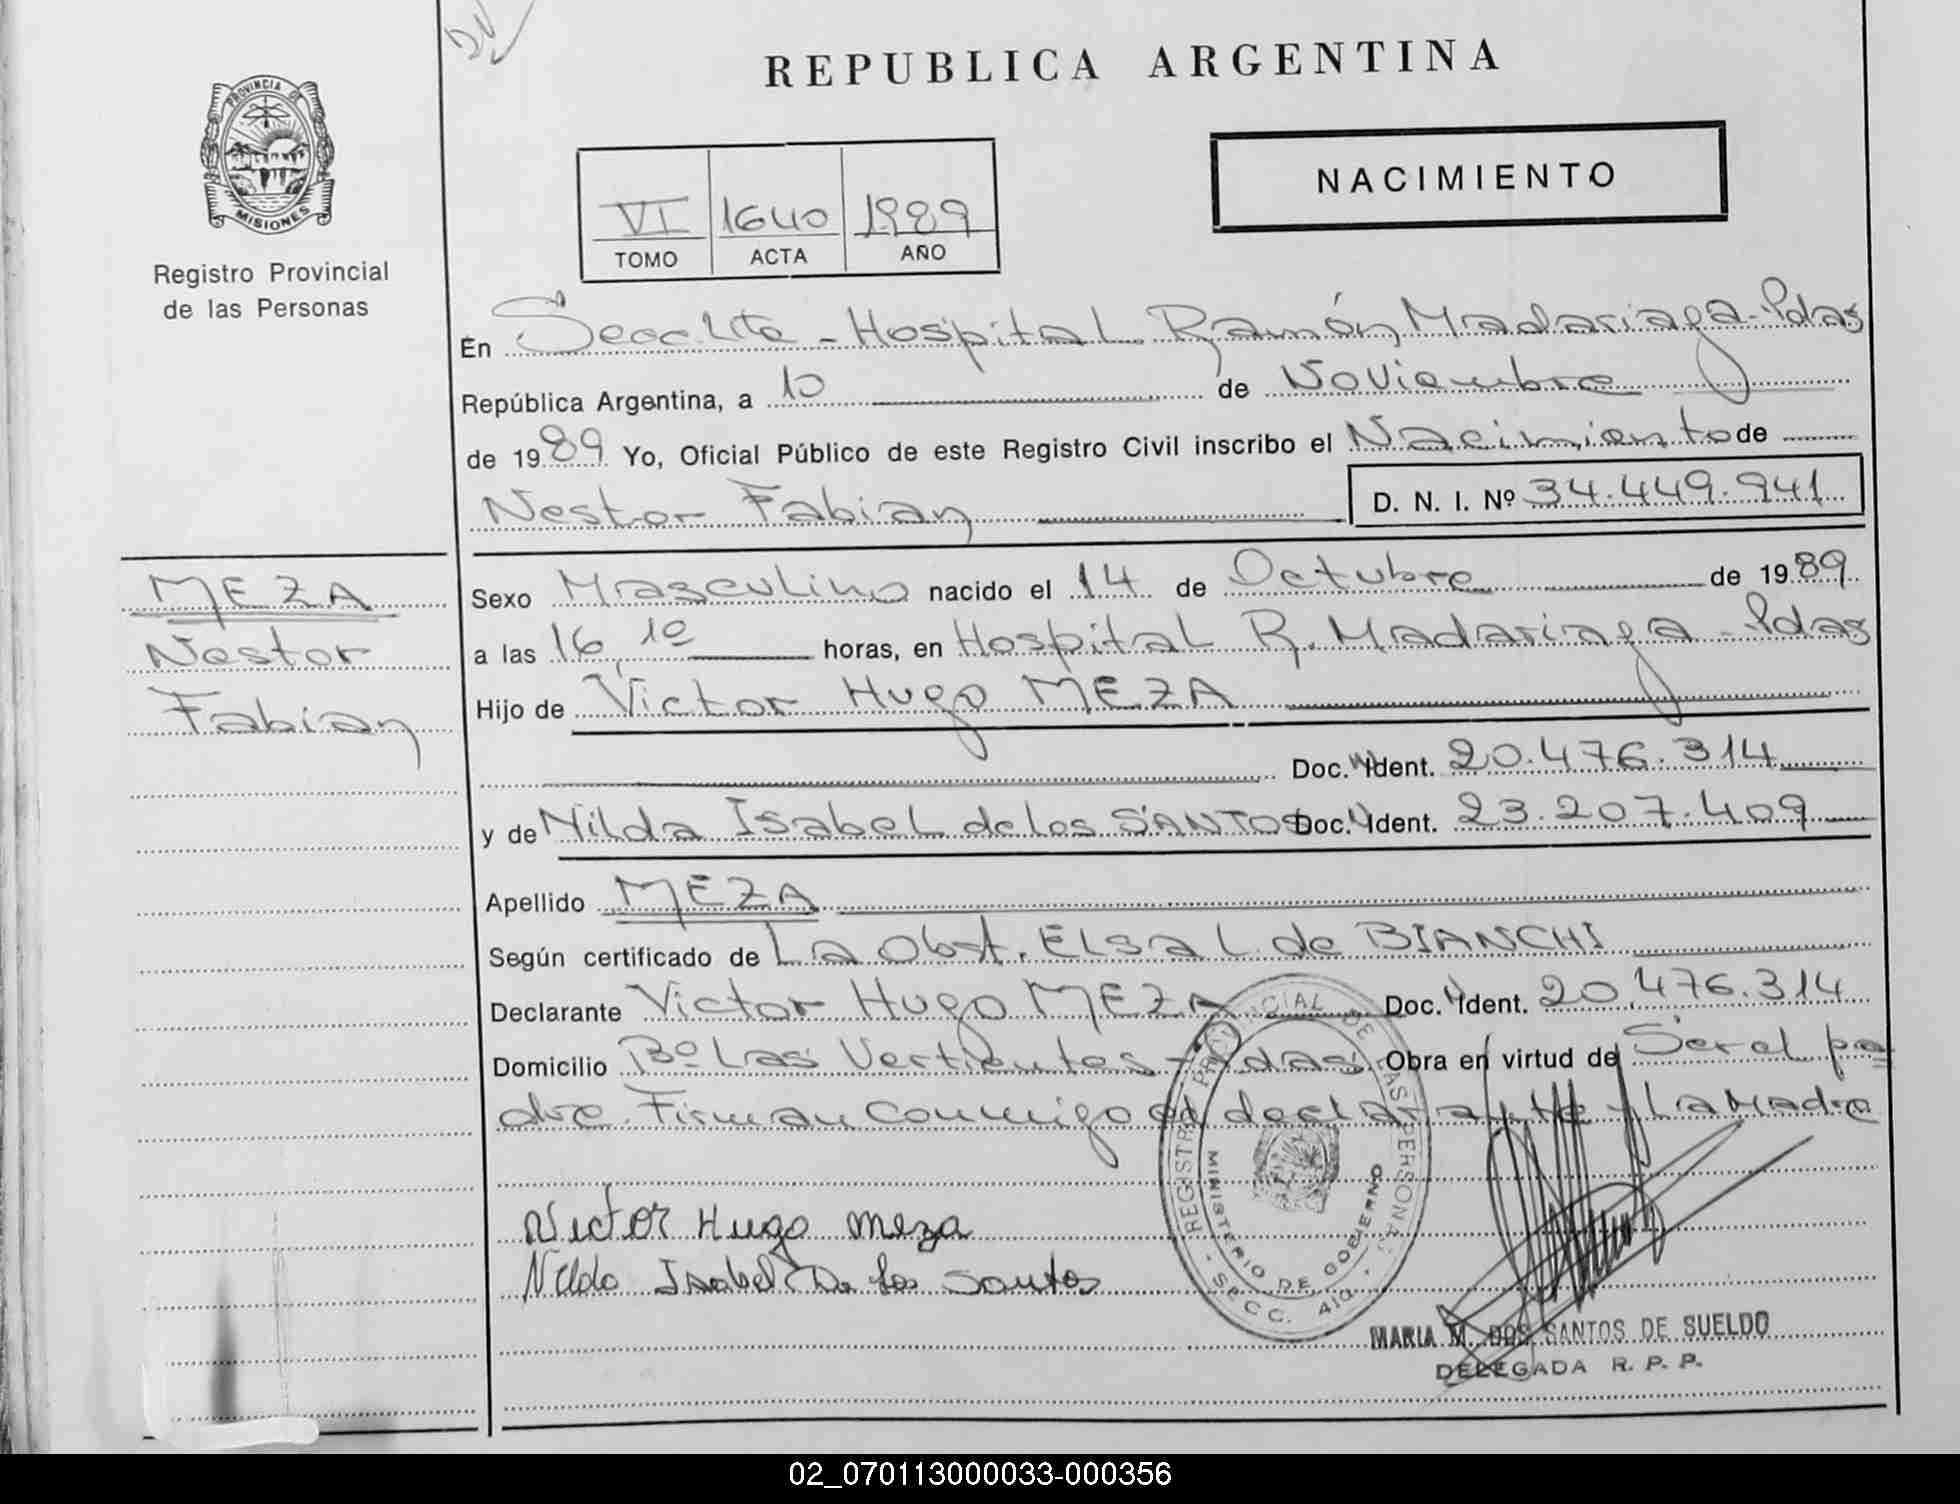 REPUBLICA ARGENTINA
PROVINCIA DE MISIONES
Registro Provincial
de las Personas
NACIMIENTO
VI 1640 1989
TOMO ACTA AÑO
En Secc. Hospital Ramón Madariaga - Pdas
República Argentina, a 10 de Noviembre
de 1989 Yo, Oficial Público de este Registro Civil inscribo el Nacimiento de
Nestor Fabian D. N. I. Nº 34.449.941
MEZA
Nestor
Fabian
Sexo Masculino nacido el 14 de Octubre de 1989
a las 16,10 horas, en Hospital R. Madariaga - Pdas
Hijo de Victor Hugo MEZA
Doc. Ident. 20.476.314
y de Nilda Isabel de los SANTOS Doc. Ident. 23.207.409
Apellido MEZA
Según certificado de La Obst. Elsa L. de BIANCHI
Declarante Victor Hugo MEZA Doc. Ident. 20.476.314
Domicilio Bº Las Vertientes - Pdas. Obra en virtud de Ser el pa
dre. Firman conmigo el declarante y La Madre
Victor Hugo Meza
Nilda Isabel De los Santos
REGISTRO PROVINCIAL DE LAS PERSONAS
MINISTERIO DE GOBIERNO
SECC. 41a
MARIA M. DOS SANTOS DE SUELDO
DELEGADA R. P. P.
02_070113000033-000356